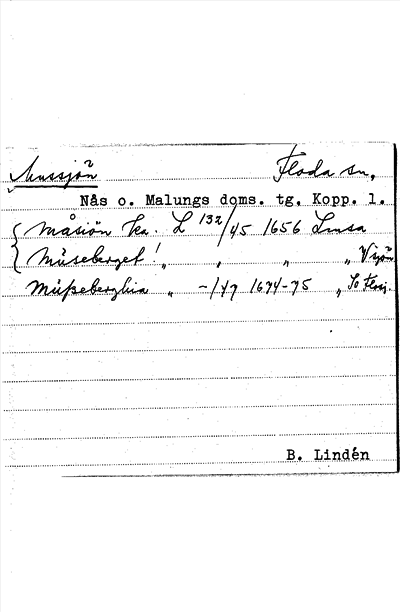 Mussjön Floda sn,
Nås o. Malungs doms. tg. Kopp. l.
Måsiön ka. L 132/45 1656 Lmsa
Müseberget! „ , „ „
Müsseberghia „ -/47 1674-75 „
B. Lindén